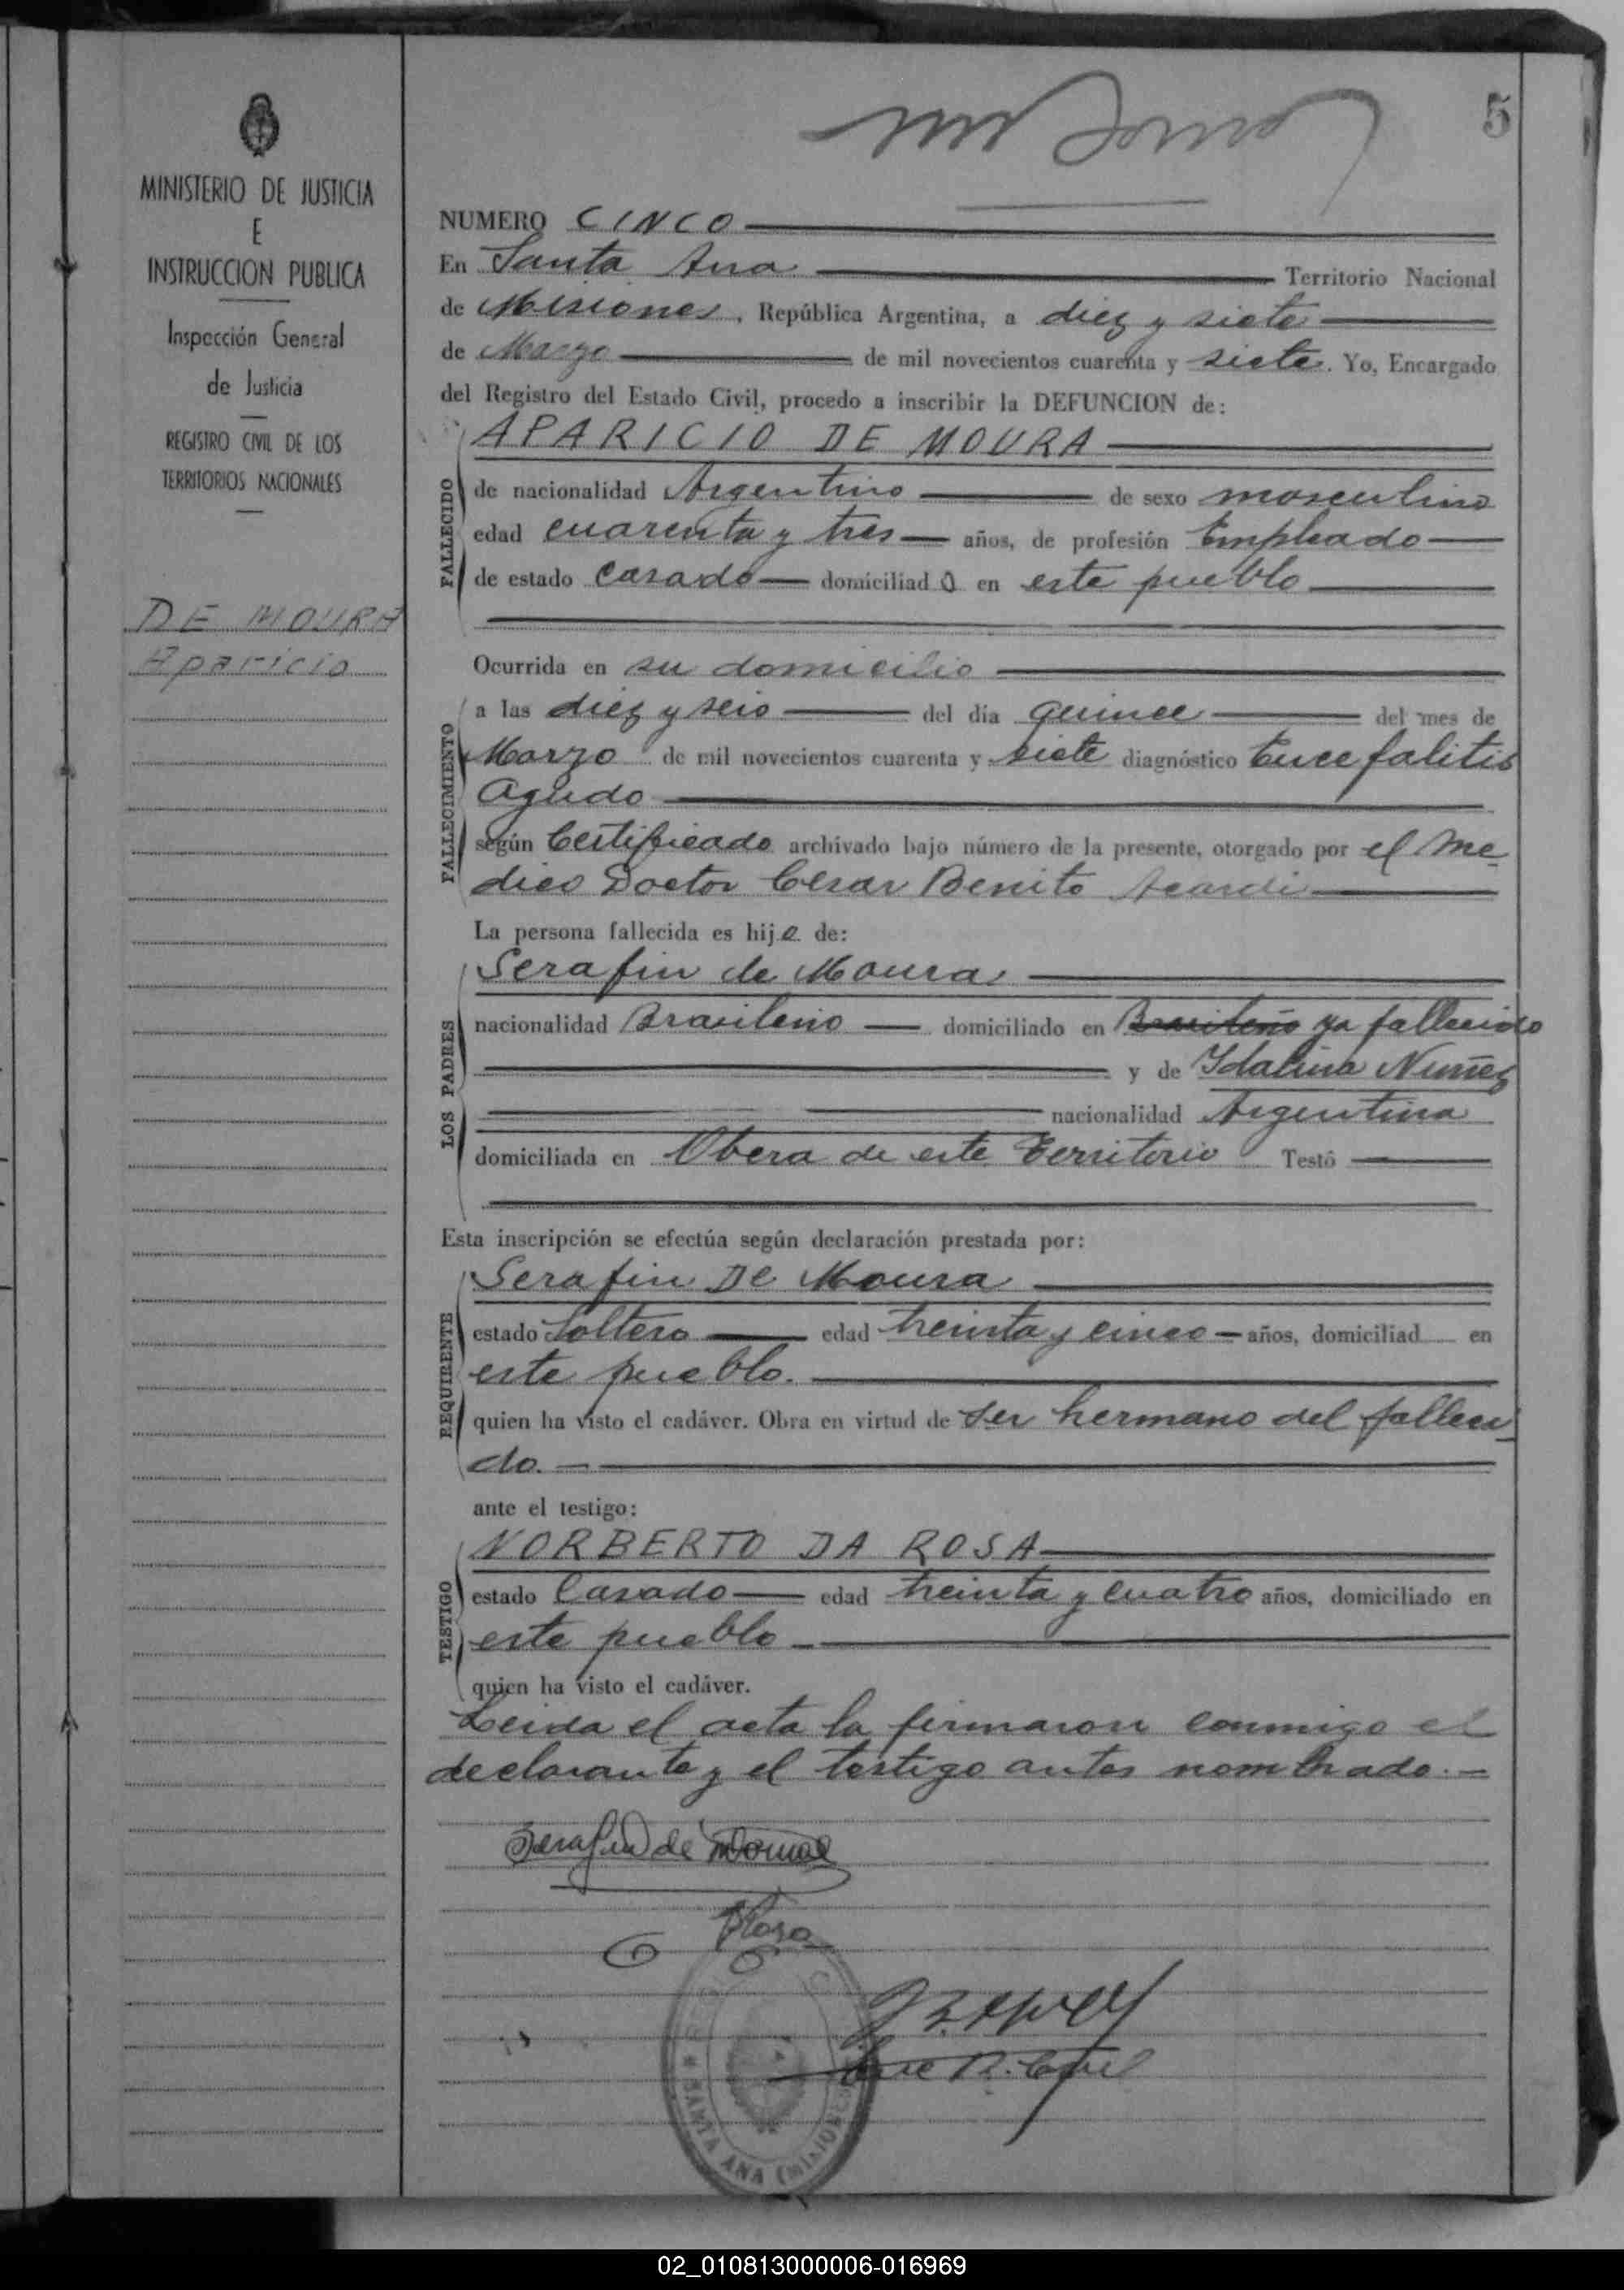 5
MINISTERIO DE JUSTICIA
E
INSTRUCCION PUBLICA
Inspección General
de Justicia
REGISTRO CIVIL DE LOS
TERRITORIOS NACIONALES
DE MOURA
Aparicio
NUMERO CINCO
En Santa Ana Territorio Nacional
de Misiones, República Argentina, a diez y siete
de Marzo de mil novecientos cuarenta y siete. Yo, Encargado
del Registro del Estado Civil, procedo a inscribir la DEFUNCION de:
APARICIO DE MOURA
FALLECIDO
de nacionalidad Argentino de sexo masculino
edad cuarenta y tres años, de profesión Empleado
de estado casado domiciliado en este pueblo
Ocurrida en su domicilio
FALLECIMIENTO
a las diez y seis del día quince del mes de
Marzo de mil novecientos cuarenta y siete diagnóstico Encefalitis
Aguda
según Certificado archivado bajo número de la presente, otorgado por el Me
dico Doctor Cesar Benito
La persona fallecida es hijo de:
LOS PADRES
Serafin de Moura
nacionalidad Brasileño domiciliado en Brasileño ya fallecido
y de Idalina Nuñez
nacionalidad Argentina
domiciliada en Obera de este Territorio Testó
Esta inscripción se efectúa según declaración prestada por:
REQUIRENTE
Serafin De Moura
estado Soltero edad treinta y cinco años, domiciliad en
este pueblo.
quien ha visto el cadáver. Obra en virtud de ser hermano del falleci
do.
ante el testigo:
TESTIGO
NORBERTO DA ROSA
estado Casado edad treinta y cuatro años, domiciliado en
este pueblo
quien ha visto el cadáver.
Leida el acta la firmaron conmigo el
declarante y el testigo antes nombrado.
Serafin de Moura
Rosa
SANTA ANA (MISIONES)
02_010813000006-016969